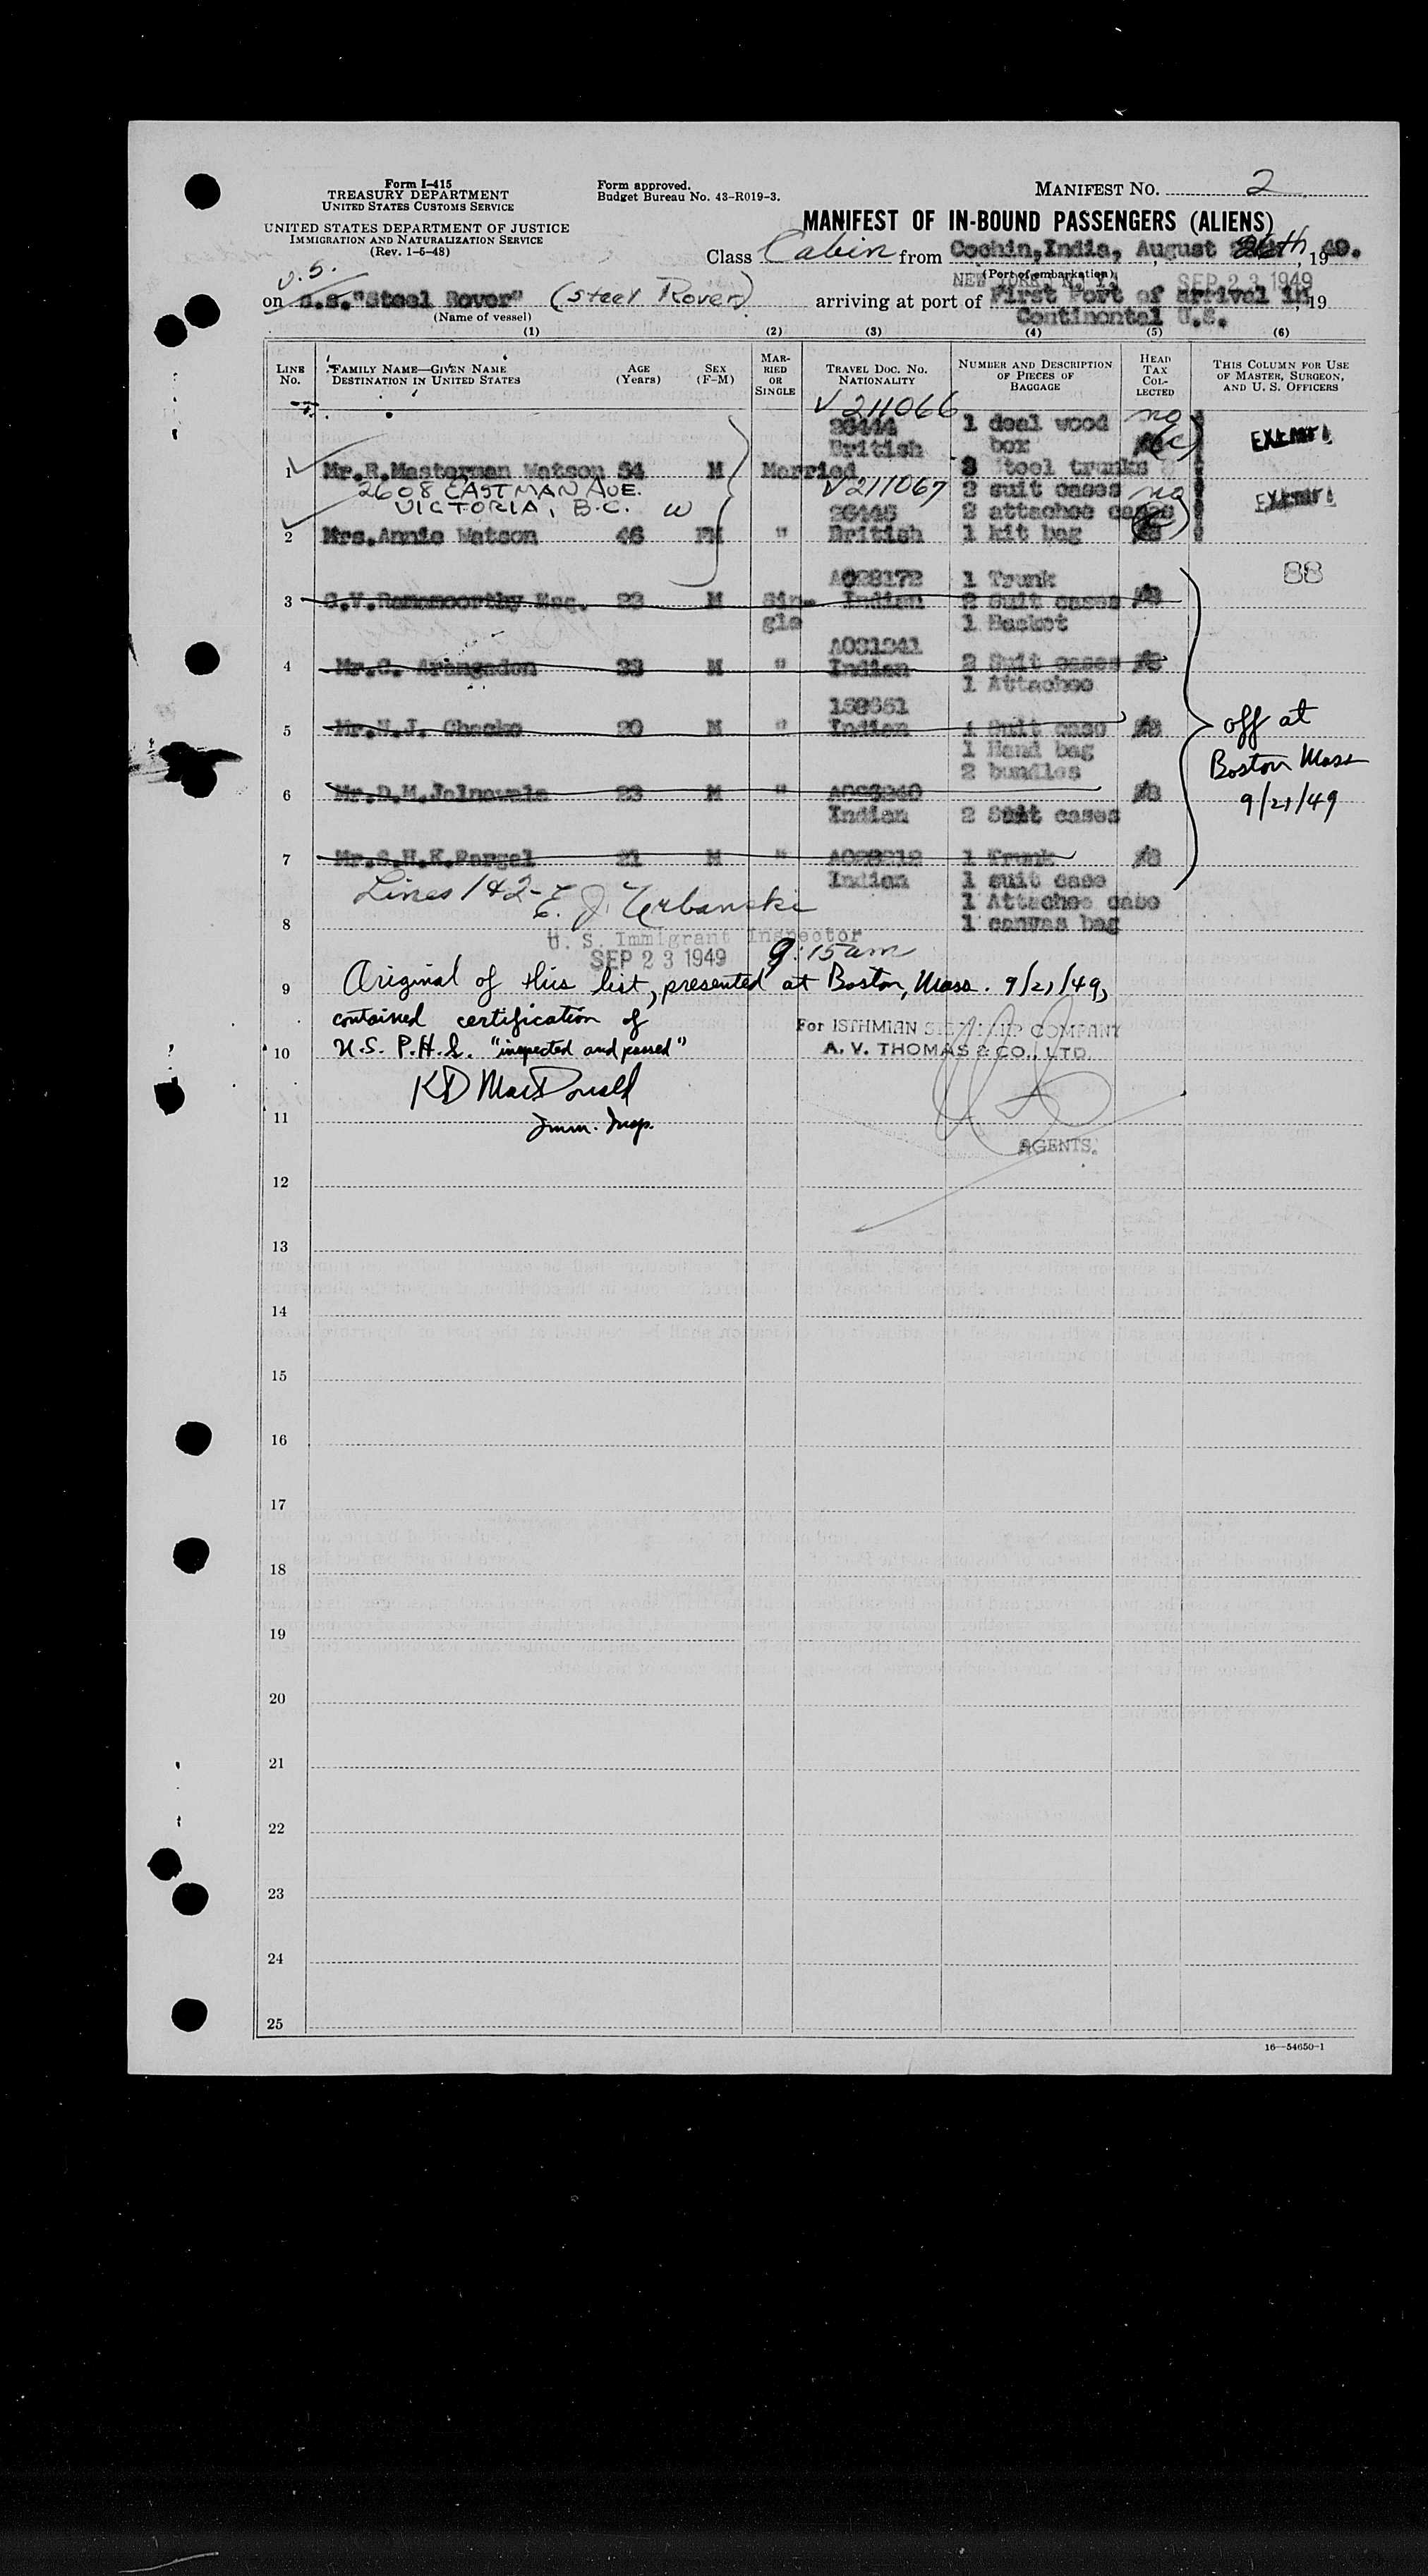 Form I-415
TREASURY DEPARTMENT
UNITED STATES CUSTOMS SERVICE
UNITED STATES DEPARTMENT OF JUSTICE
IMMIGRATION AND NATURALIZATION SERVICE
(Rev. 1-5-48)
Form approved.
Budget Bureau No. 43-R019-3.
MANIFEST NO. 2
MANIFEST OF IN-BOUND PASSENGERS (ALIENS)
Class Cabin from Cochin, India, August 26th, 1949.
(Port of embarkation)
on s.s."Steel Rover" (Steel Rover) arriving at port of First Port of arrival in, 19
NEW YORK, N.Y. SEP 23 1949
(Name of vessel)
Continental U.S.
(1) (2) (3) (4) (5) (6)
LINE NO.
FAMILY NAME—GIVEN NAME
DESTINATION IN UNITED STATES
AGE (Years)
SEX (F-M)
MARRIED OR SINGLE
TRAVEL DOC. NO. NATIONALITY
NUMBER AND DESCRIPTION OF PIECES OF BAGGAGE
HEAD TAX COLLECTED
THIS COLUMN FOR USE OF MASTER, SURGEON, AND U. S. OFFICERS
V211066
26444 1 deal wood no
British box EXEMPT
1 Mr.R.Masterman Watson 54 M Married 3 Steel trunks
2608 EASTMAN AVE. V211067 2 suit cases no
VICTORIA, B.C. W 26445 2 attachee cases EXEMPT
2 Mrs.Annie Watson 46 FM " British 1 kit bag
88
A028172 1 Trunk
3 G.V.Ramamoorthy Esq. 23 M Sin- Indian 2 Suit cases
gle 1 Basket
A031341
4 Mr.C. Arangaden M " Indian 2 Suit cases
1 Attachee
5 Mr.N.J. Chacko 20 M " Indian 1 Suit case
1 Hand bag
2 bundles
6 23 M "
Indian 2 Suit cases
7 Mr.S.H.K.Pargal 21 M " 1 Trunk
Indian 1 suit case
1 Attachee case
1 canvas bag
off at
Boston Mass
9/21/49
Lines 1&2- E. J. Urbanski
8
U. S. Immigrant Inspector
SEP 23 1949 9:15am
9 Original of this list, presented at Boston, Mass. 9/21/49,
contained certification of
10 U.S. P.H.S. "inspected and passed"
KD MacDonald
11 Imm. Insp.
For ISTHMIAN STEAMSHIP COMPANY
A. V. THOMAS & CO., LTD.
AGENTS.
12
13
14
15
16
17
18
19
20
21
22
23
24
25
16—54650-1